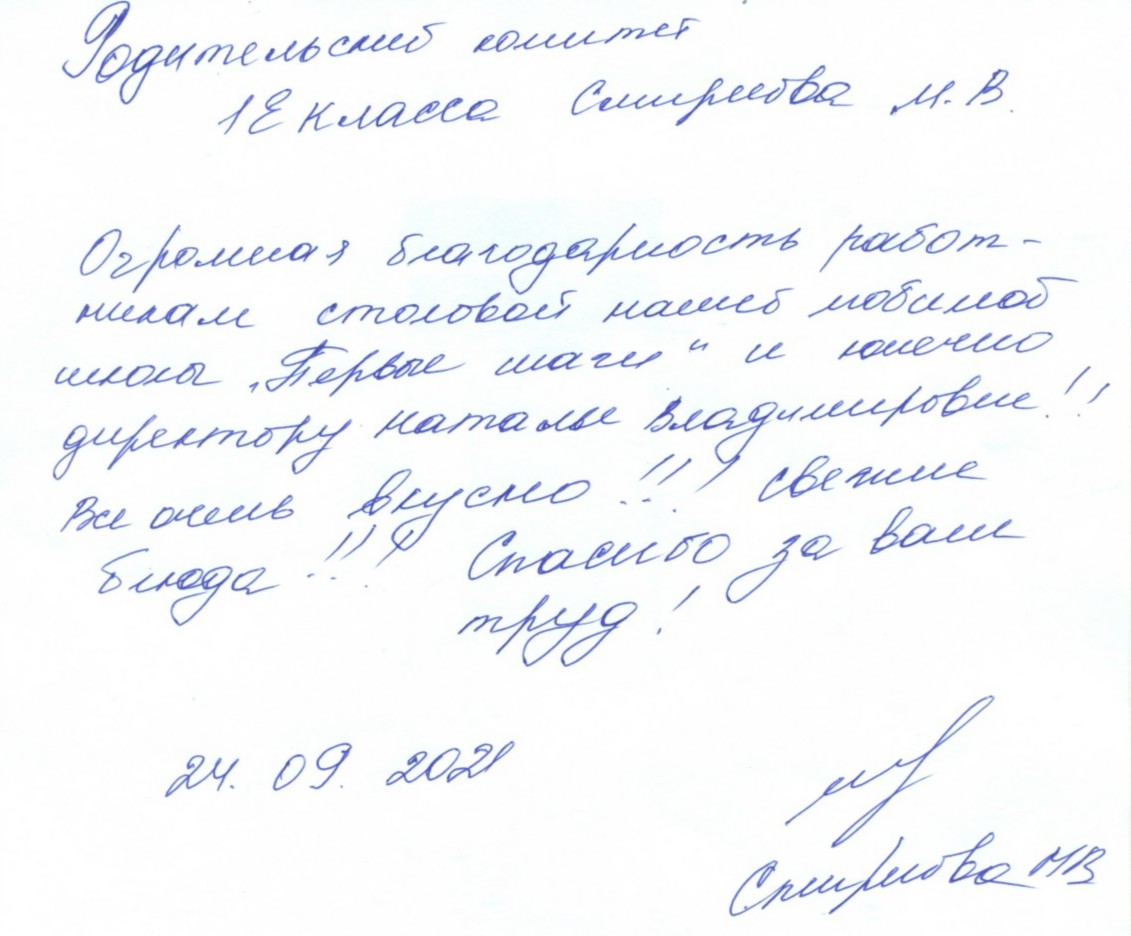 Родительский комитет
1Е класса Смирнова М.В.
Огромная благодарность работ-
никам столовой нашей любимой
школы „Первые шаги“ и конечно
директору Наталье Владимировне!!
Все очень вкусно!!! свежие
блюда!!! Спасибо за ваш
труд!
24.09.2021
Смирнова МВ